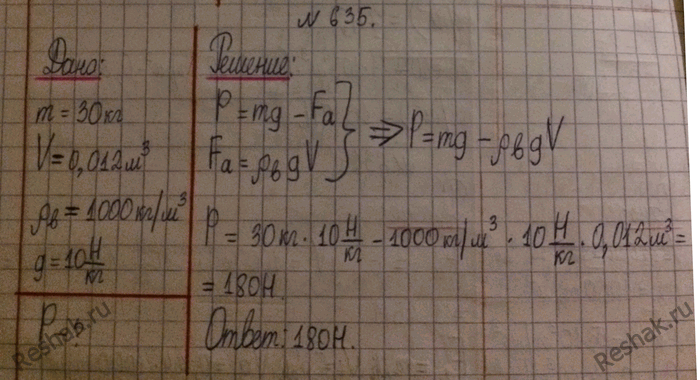 N 635.
Дано:
m = 30 кг
V = 0,012 м³
ρв = 1000 кг/м³
g = 10 Н/кг
P - ?
Решение:
P = mg - Fa
Fa = ρв g V
} => P = mg - ρв g V
P = 30 кг · 10 Н/кг - 1000 кг/м³ · 10 Н/кг · 0,012 м³ =
= 180 Н.
Ответ: 180 Н.
Reshak.ru
Reshak.ru